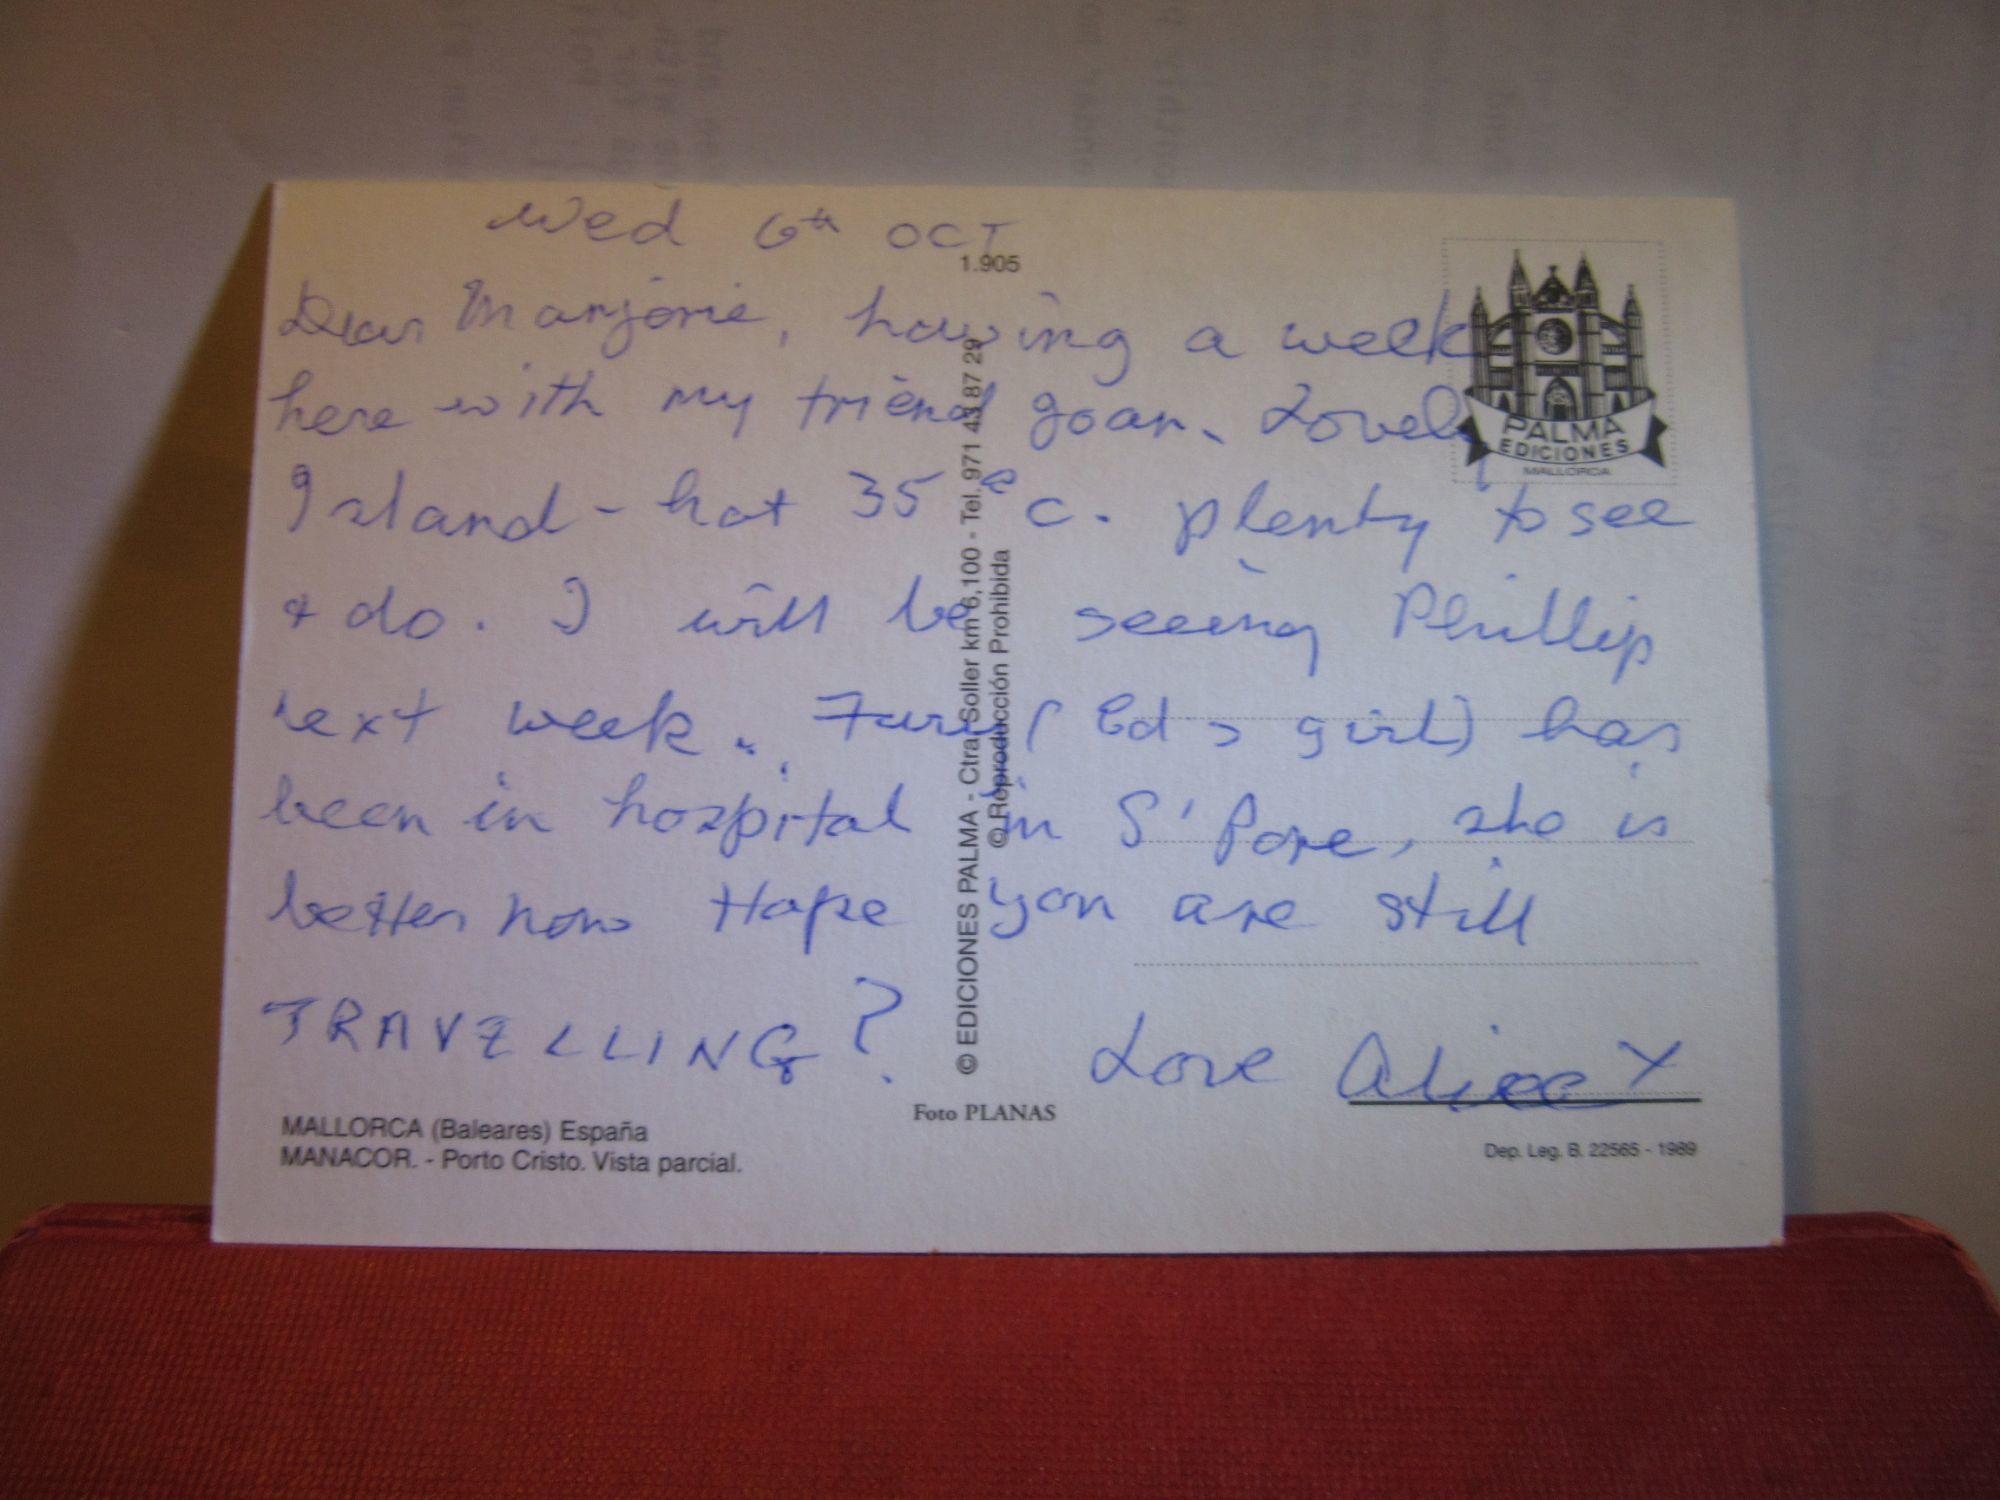 Wed 6th OCT
1.905
Dear Marjorie, having a week
here with my friend Joan. Lovely
Island - hot 35°c. plenty to see
+ do. I will be seeing Phillip
next week. (Ed's girl) has
been in hospital in S'Pore, she is
better now Hope you are still
TRAVELLING? Love Alice X
PALMA
EDICIONES
MALLORCA
© EDICIONES PALMA - Ctra. Soller km 6,100 - Tel. 971 43 87 29
© Reproducción Prohibida
Foto PLANAS
MALLORCA (Baleares) España
MANACOR. - Porto Cristo. Vista parcial.
Dep. Leg. B. 22565 - 1989